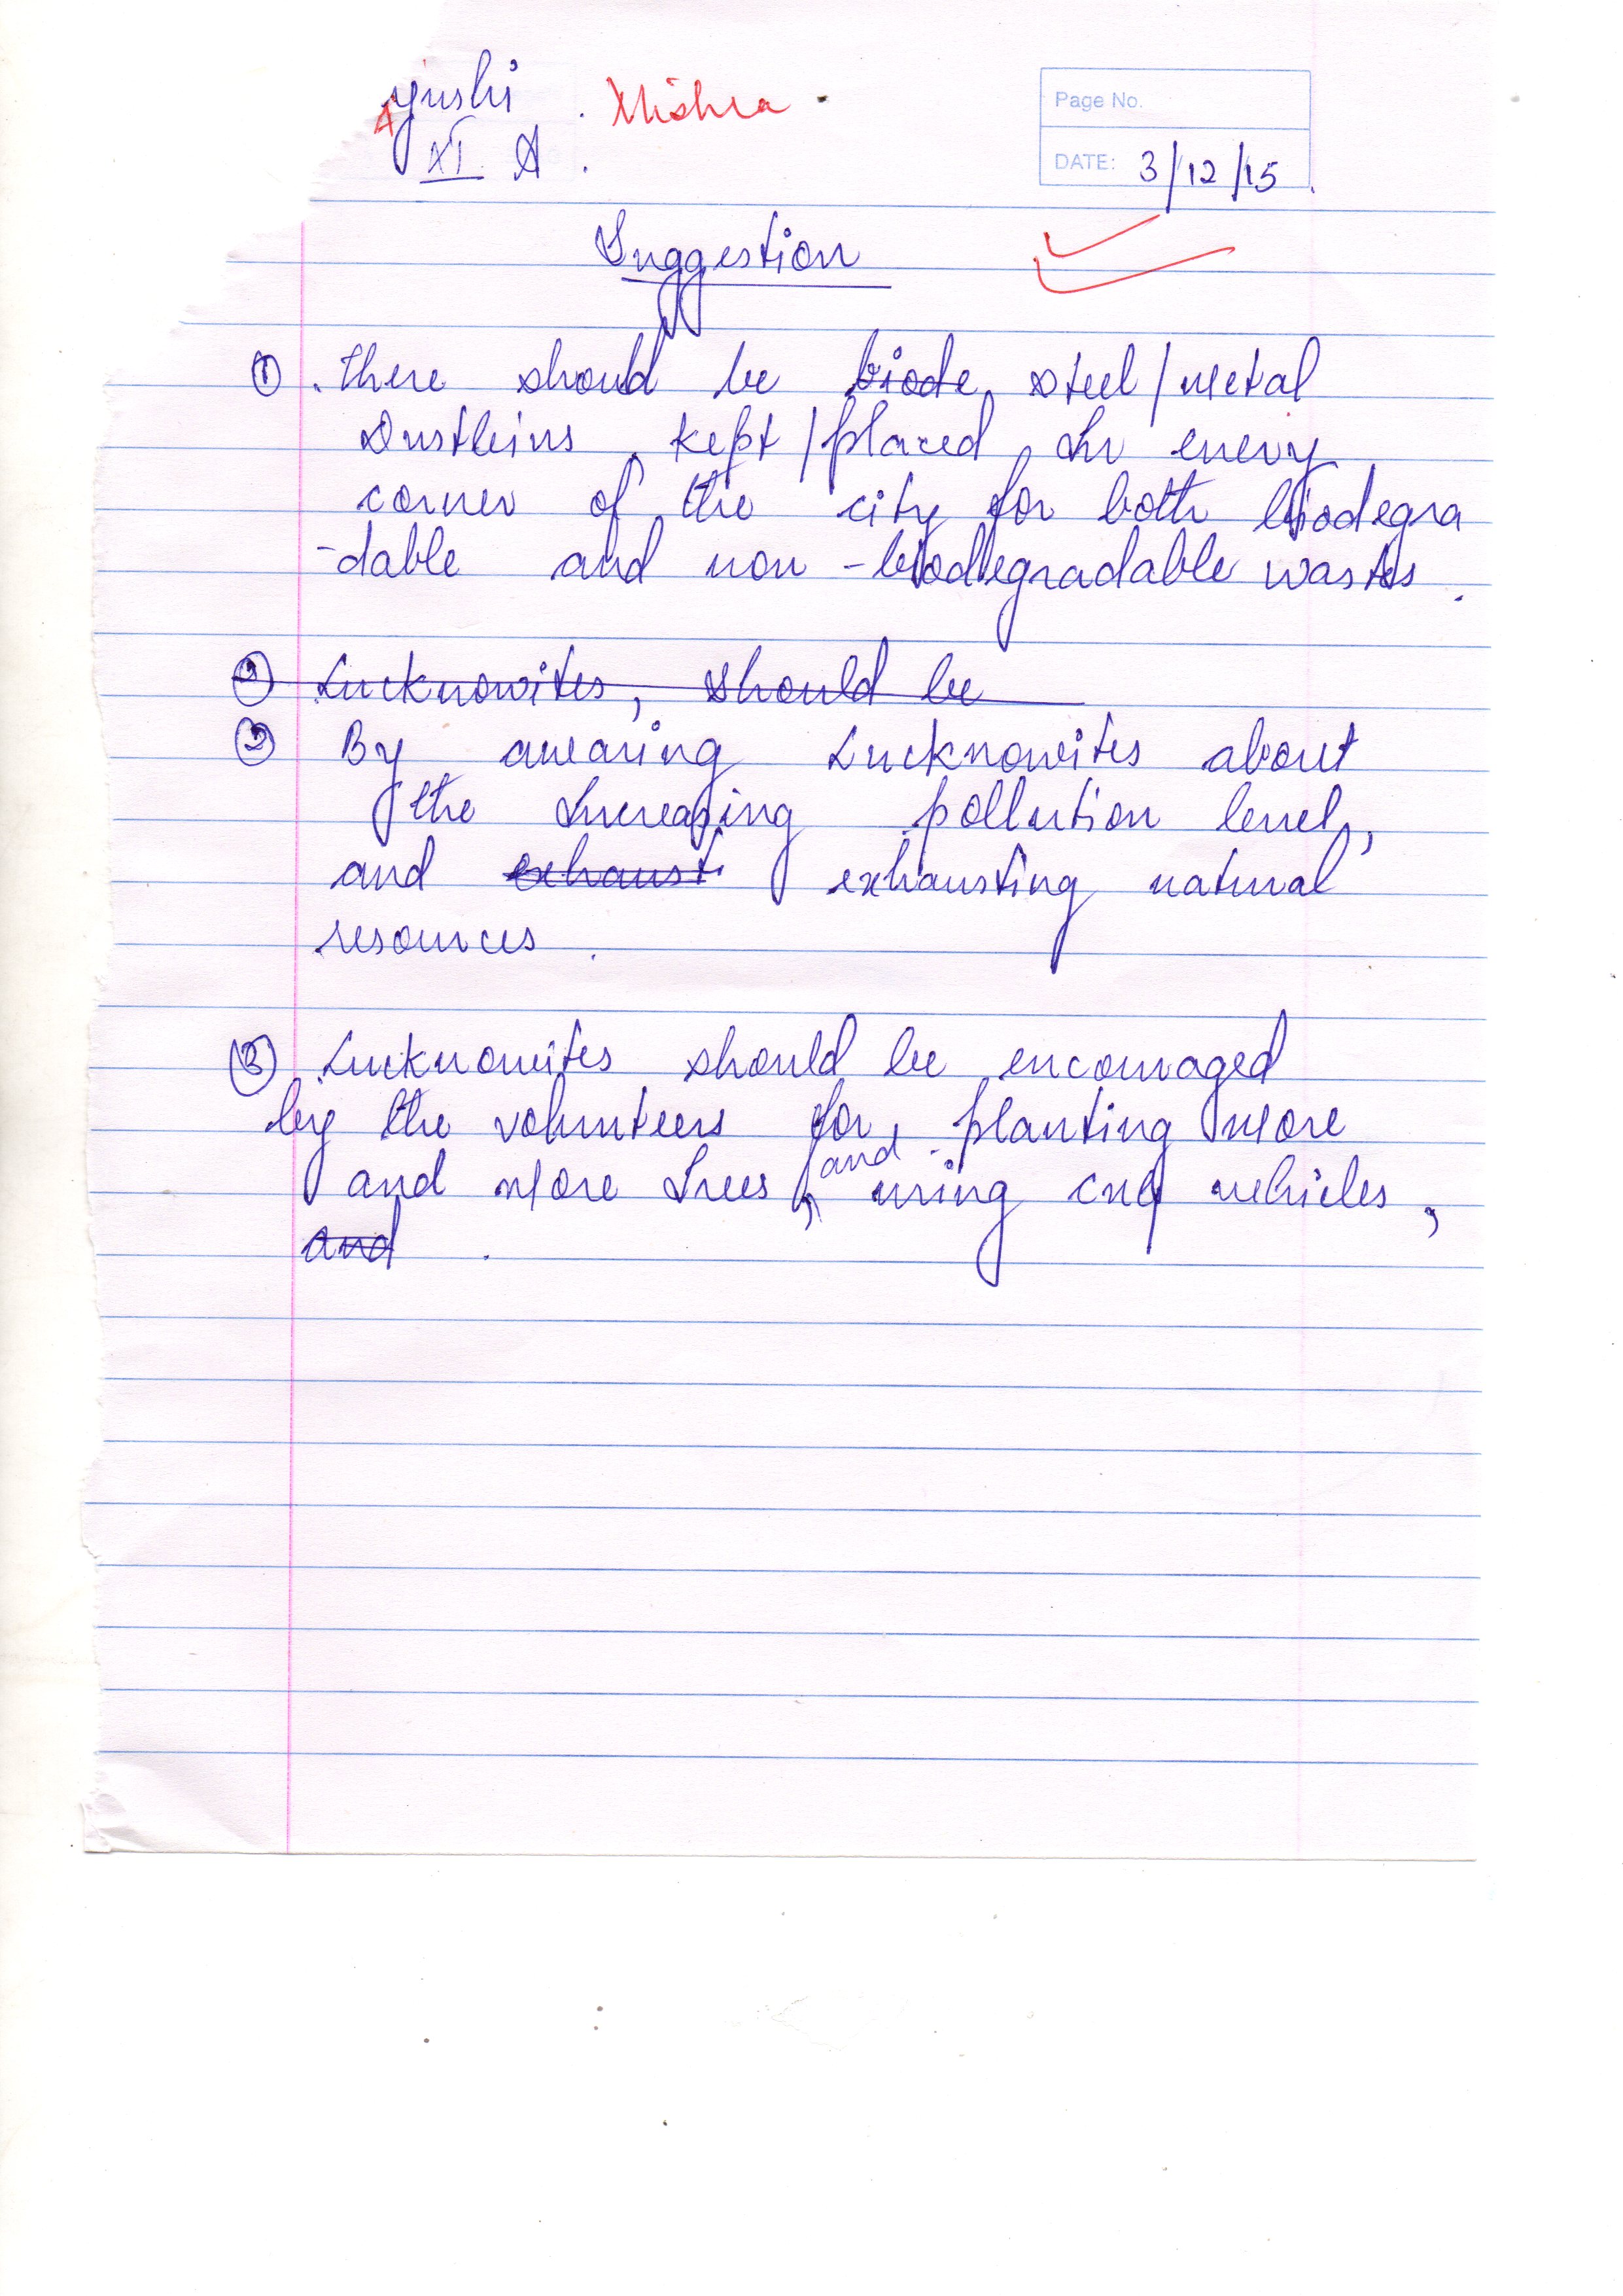 Ayushi Mishra
XI A
Page No.
DATE: 3/12/15
Suggestion
① There should be biode steel/metal
Dustbins kept/placed In every
corner of the city for both biodegra
-dable and non-biodegradable wastes.
② Lucknowites, should be
② By awaring Lucknowites about
the Increasing pollution level,
and exhaust exhausting natural
resources.
③ Lucknowites should be encouraged
by the volunteers for planting more
and more trees, and using cng vehicles,
and .